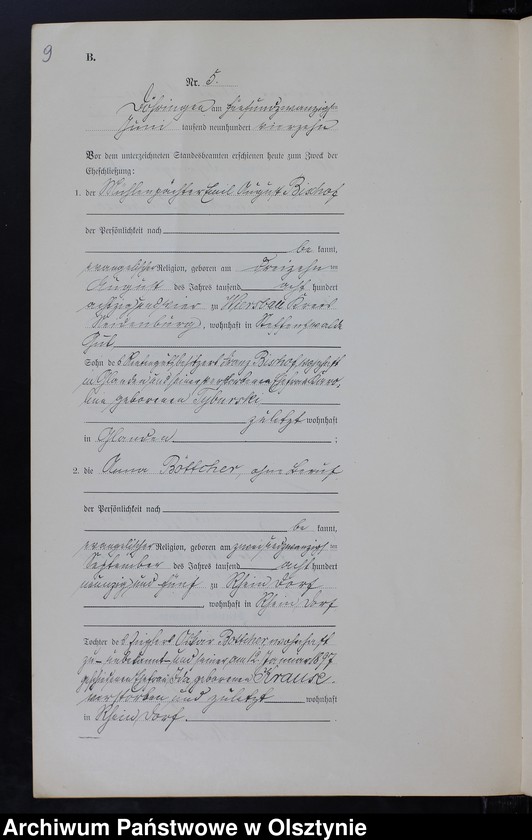 9
B.
Nr. 5.
Döhringen am fünfundzwanzigsten
Juni tausend neunhundert vierzehn
Vor dem unterzeichneten Standesbeamten erschienen heute zum Zweck der
Eheschließung:
1. der Mühlenpächter Emil August Bishof
der Persönlichkeit nach
be kannt,
evangelischer Religion, geboren am dreizehnten
August des Jahres tausend acht hundert
achtzig und vier zu Kreis
Neidenburg, wohnhaft in Steffenswalde
Gut
Sohn des Rentengutsbesitzers Franz Bishof, wohnhaft
in Glanden und seiner verstorbenen Ehefrau Karo
line geborenen Tyburski
zuletzt wohnhaft
in Glanden ;
2. die Anna Böttcher, ohne Beruf
der Persönlichkeit nach
be kannt,
evangelischer Religion, geboren am zweiundzwanzigsten
September des Jahres tausend acht hundert
neunzig und fünf zu Rhein Dorf
, wohnhaft in Rhein Dorf
Tochter des Zieglers Oskar Böttcher, wohnhaft
zu unbekannt und seiner am 12. Januar 1897
geschiedenen Ehefrau Ida geborenen Krause
verstorben und zuletzt wohnhaft
in Rhein Dorf.
Archiwum Państwowe w Olsztynie